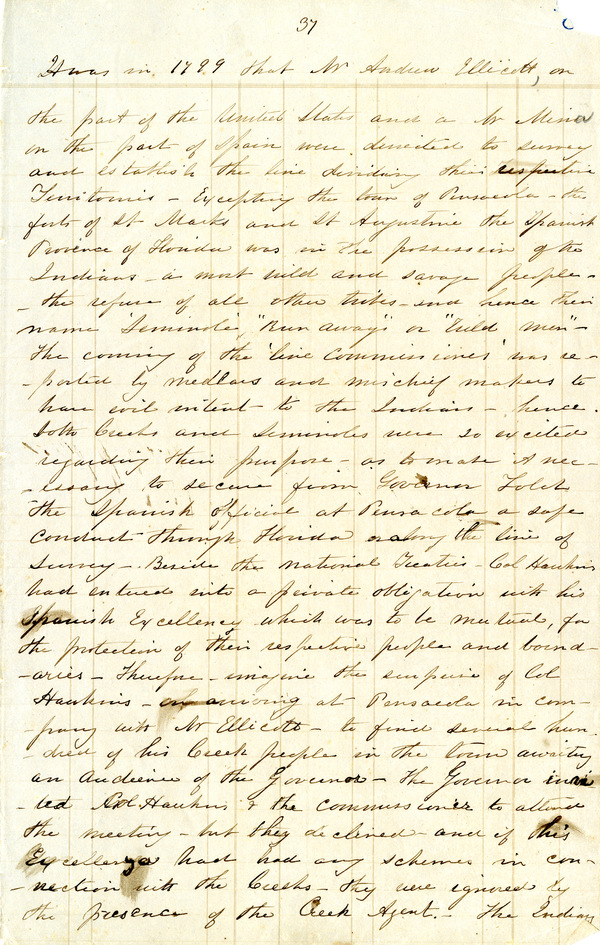 37
It was in 1799 that Mr Andrew Ellicott, on
the part of the United States and a Mr Minor
on the part of Spain were directed to survey
and establish the line dividing their respective
Territories - Excepting the town of Pensacola - the
forts of St Marks and St Augustine the Spanish
Province of Florida was in the possession of the
Indians - a most wild and savage people -
- the refuse of all other tribes - and hence their
name 'Seminole', "Run aways" or "Wild men" -
The coming of the 'line Commissioners' was re-
-ported by medlars and mischief makers to
have evil intent - to the Indians - hence
both Creeks and Seminoles were so excited
regarding their purpose - as to make it nec-
-essary to secure from Governor Folch
the Spanish officer at Pensacola a safe
conduct through Florida or along the line of
survey - Beside the national Treaties - Col Hawkins
had entered into a private obligation with his
Spanish Excellency which was to be mutual, for
the protection of their respective people and bound-
-aries - Therefore - imagine the surprise of Col
Hawkins - on arriving at Pensacola in com-
-pany with Mr Ellicott - to find several hun-
-dred of his Creek people in the town awaiting
an audience of the Governor - the Governor invi
-ted Col Hawkins & the commissioner to attend
the meeting - but they declined - and if his
Excellenza had had any schemes in con-
-nection with the Creeks - they were ignored by
the presence of the Creek Agent. - The Indians